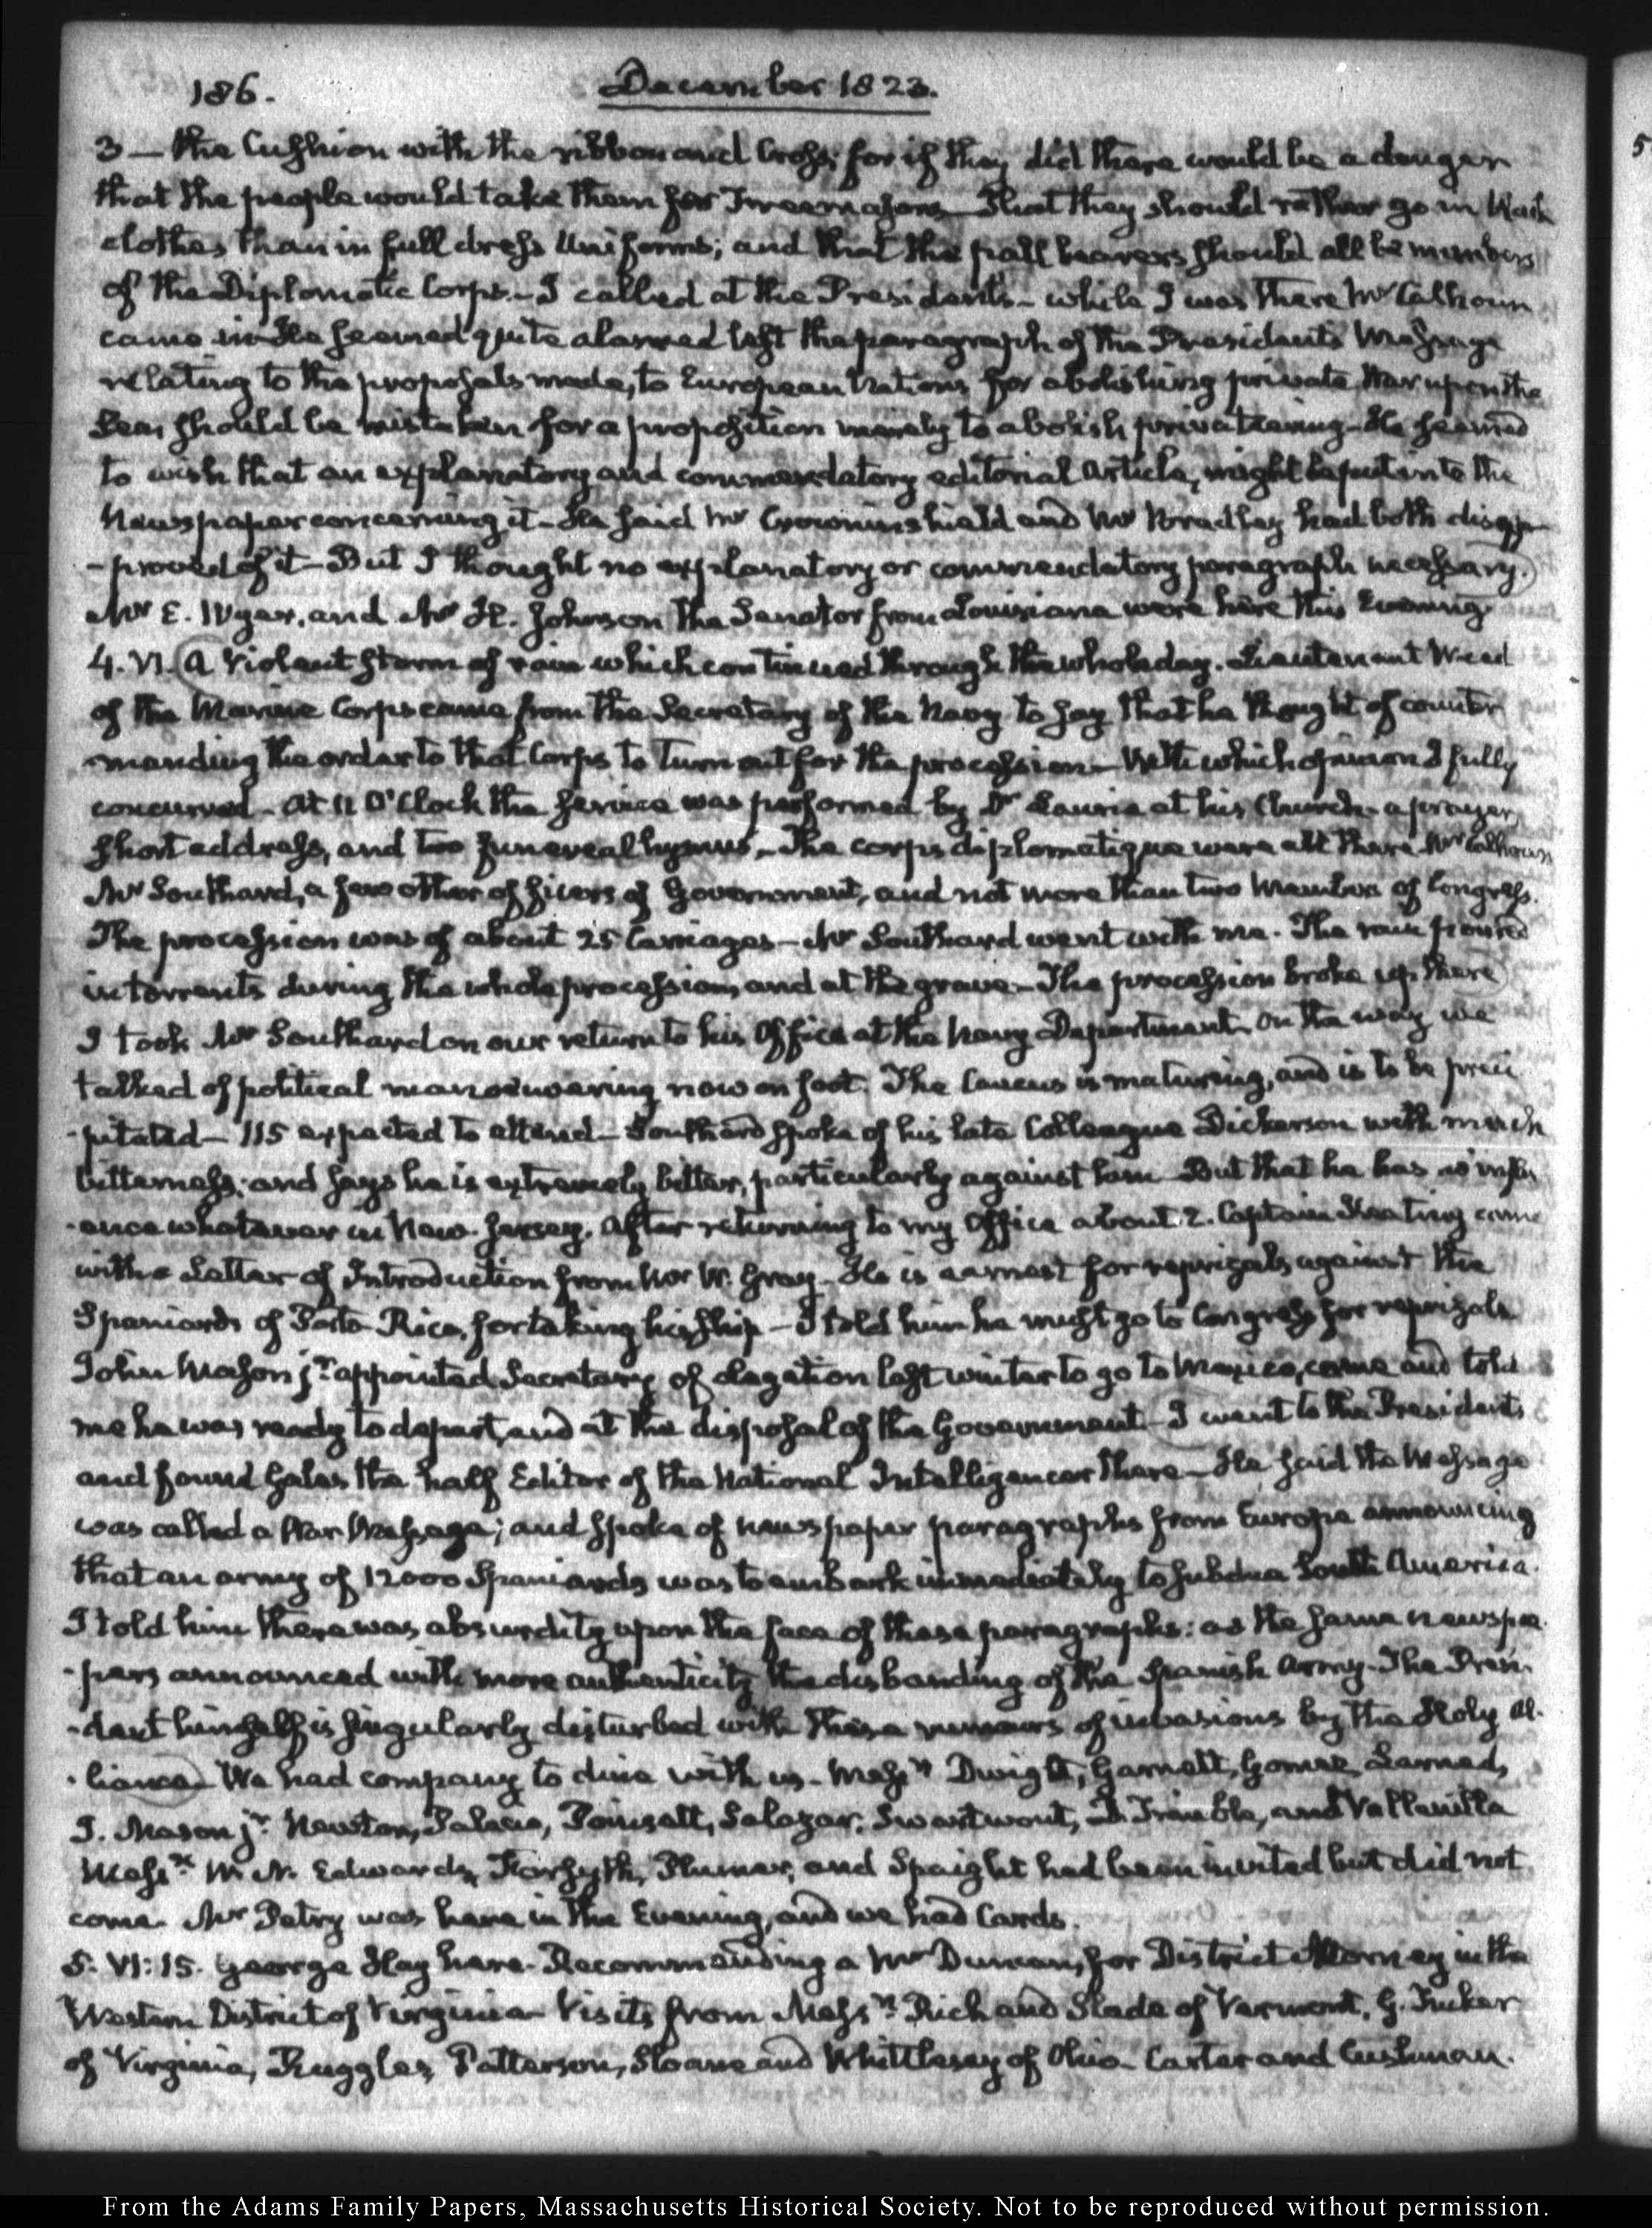 186.
December 1823.
3 — the Cushion with the ribbon and Cross; for if they did there would be a danger
that the people would take them for Freemasons — That they should rather go in black
clothes than in full dress Uniforms; and that the pall bearers should all be members
of the Diplomatic Corps — I called at the President's — while I was there Mr Calhoun
came in — He seemed quite alarmed lest the paragraph of the President's Message
relating to the proposals made, to European Nations for abolishing private War upon the
Sea, should be mistaken for a proposition merely to abolish privateering — He seemed
to wish that an explanatory and commendatory editorial Article, might be put into the
Newspaper concerning it — He said Mr Crowninshield and Mr Bradley had both disap-
-proved of it — But I thought no explanatory or commendatory paragraph necessary.
Mr E. Wyer, and Mr H. Johnson the Senator from Louisiana were here this Evening.
4. VI. A violent storm of rain which continued through the whole day. Lieutenant Weed
of the Marine Corps came from the Secretary of the Navy to say that he thought of counter
manding the order to that Corps to turn out for the procession — With which opinion I fully
concurred — At 11 O'Clock the service was performed by Dr Laurie at his Church — a prayer,
short address, and two funereal hymns — The corps diplomatique were all there Mr Calhoun
Mr Southard, a few other officers of Government, and not more than two Members of Congress.
The procession was of about 25 Carriages — Mr Southard went with me. The rain poured
in torrents during the whole procession, and at the grave — The procession broke up there
I took Mr Southard on our return to his Office at the Navy Department. On the way we
talked of political manoeuvering now on foot. The Caucus is maturing, and is to be preci
-pitated — 115 expected to attend — Southard spoke of his late Colleague Dickerson with much
bitterness; and says he is extremely bitter, particularly against him — But that he has no influ
-ence whatever in New-Jersey. After returning to my Office about 2. Captain Keating came
with a Letter of Introduction from Mr W. Gray — He is earnest for reprisals against the
Spaniards of Porto Rico, for taking his ship — I told him he must go to Congress for reprisals
John Mason jr. appointed Secretary of Legation last winter to go to Mexico, came and told
me he was ready to depart, and at the disposal of the Government — I went to the President's
and found Gales the half Editor of the National Intelligencer there — He said the Message
was called a War Message; and spoke of newspaper paragraphs from Europe announcing
that an army of 12000 Spaniards was to embark immediately to subdue South America.
I told him there was absurdity upon the face of these paragraphs: as the same newspa
-pers announced with more authenticity the disbanding of the Spanish Army — The Presi-
-dent himself is singularly disturbed with these rumours of invasions by the Holy Al-
-liance — We had company to dine with us — Messrs Dwight, Garnett, Gomez, Larned,
J. Mason jr. Newton, Palacio, Poinsett, Salazar, Swartwout, D. Trimble, and Vallenilla
Messrs W. N. Edwards, Forsyth, Plumer, and Spaight had been invited but did not
come. Mr Petry was here in the Evening, and we had Cards.
5. VI: 15. George Hay here. Recommending a Mr Duncan, for District Attorney in the
Western District of Virginia — Visits from Messrs Rich and Slade of Vermont, G. Tucker
of Virginia, Ruggles, Patterson, Sloane and Whittlesey of Ohio — Carter and Cushman.
5
From the Adams Family Papers, Massachusetts Historical Society. Not to be reproduced without permission.